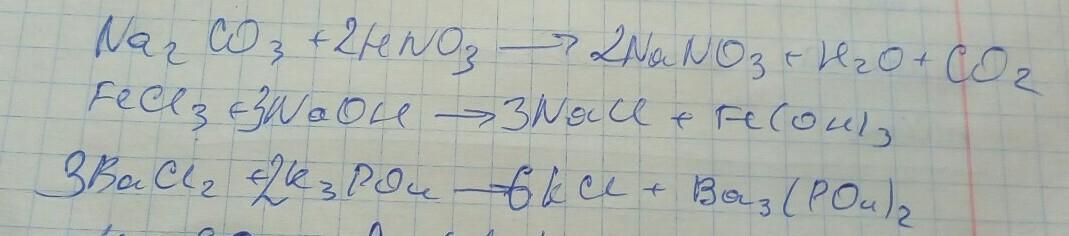 Na₂CO₃ + 2HNO₃ → 2NaNO₃ + H₂O + CO₂
FeCl₃ + 3NaOH → 3NaCl + Fe(OH)₃
3BaCl₂ + 2K₃PO₄ → 6KCl + Ba₃(PO₄)₂